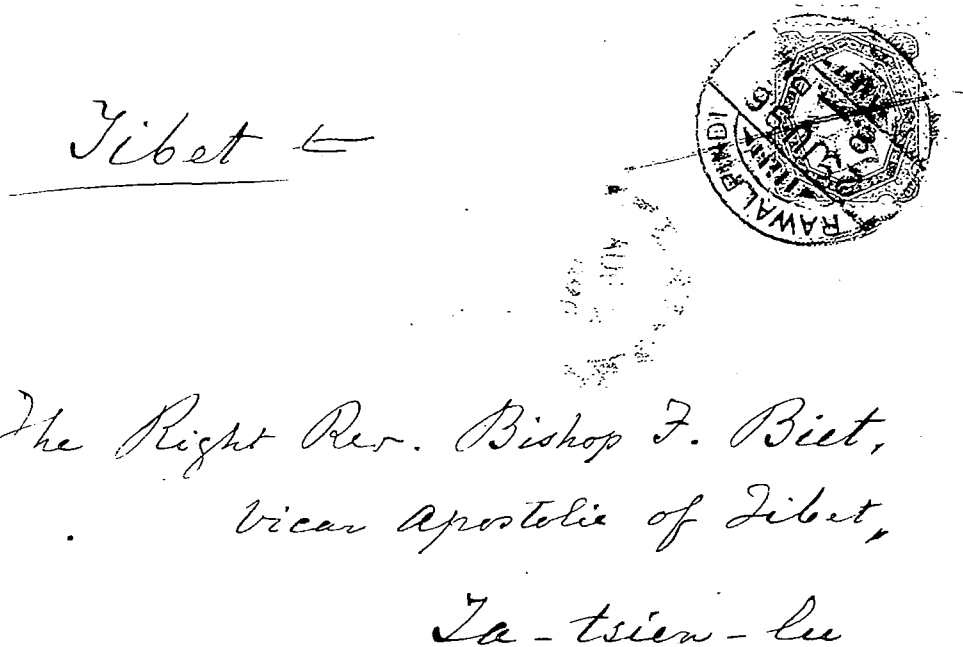 Tibet
RAWALPINDI
The Right Rev. Bishop F. Biet,
Vicar Apostolic of Tibet,
Ta-tsien-lu